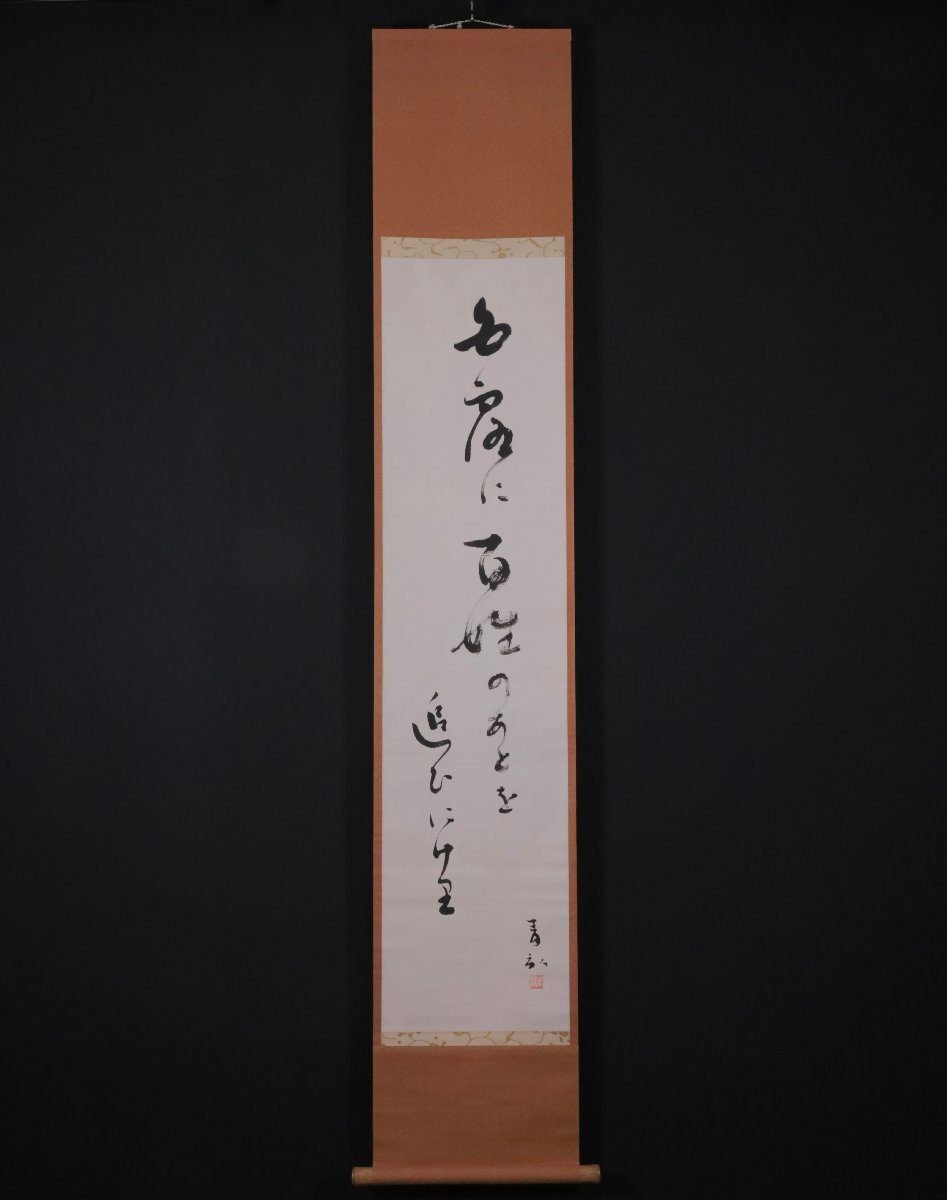 白露に百姓のあとを
追ひにけり
青畝